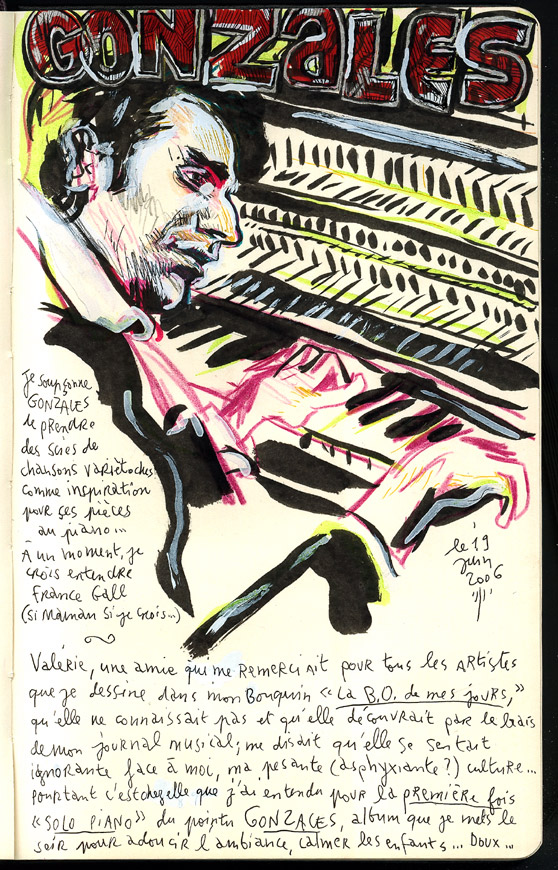 GONZALES
Je soupçonne
GONZALES
de prendre
des scies de
chansons variétoches
comme inspiration
pour ses pièces
au piano...
À un moment, je
crois entendre
France Gall
(si Maman si je crois...)
le 19
juin
2006
Valérie, une amie qui me remerciait pour tous les artistes
que je dessine dans mon bouquin "La B.O. de mes jours,"
qu'elle ne connaissait pas et qu'elle découvrait par le biais
de mon journal musical; me disait qu'elle se sentait
ignorante face à moi, ma pesante (asphyxiante?) culture...
Pourtant c'est chez elle que j'ai entendu pour la première fois
"SOLO PIANO" du pointu GONZALES, album que je mets le
soir pour adoucir l'ambiance, calmer les enfants... Doux...